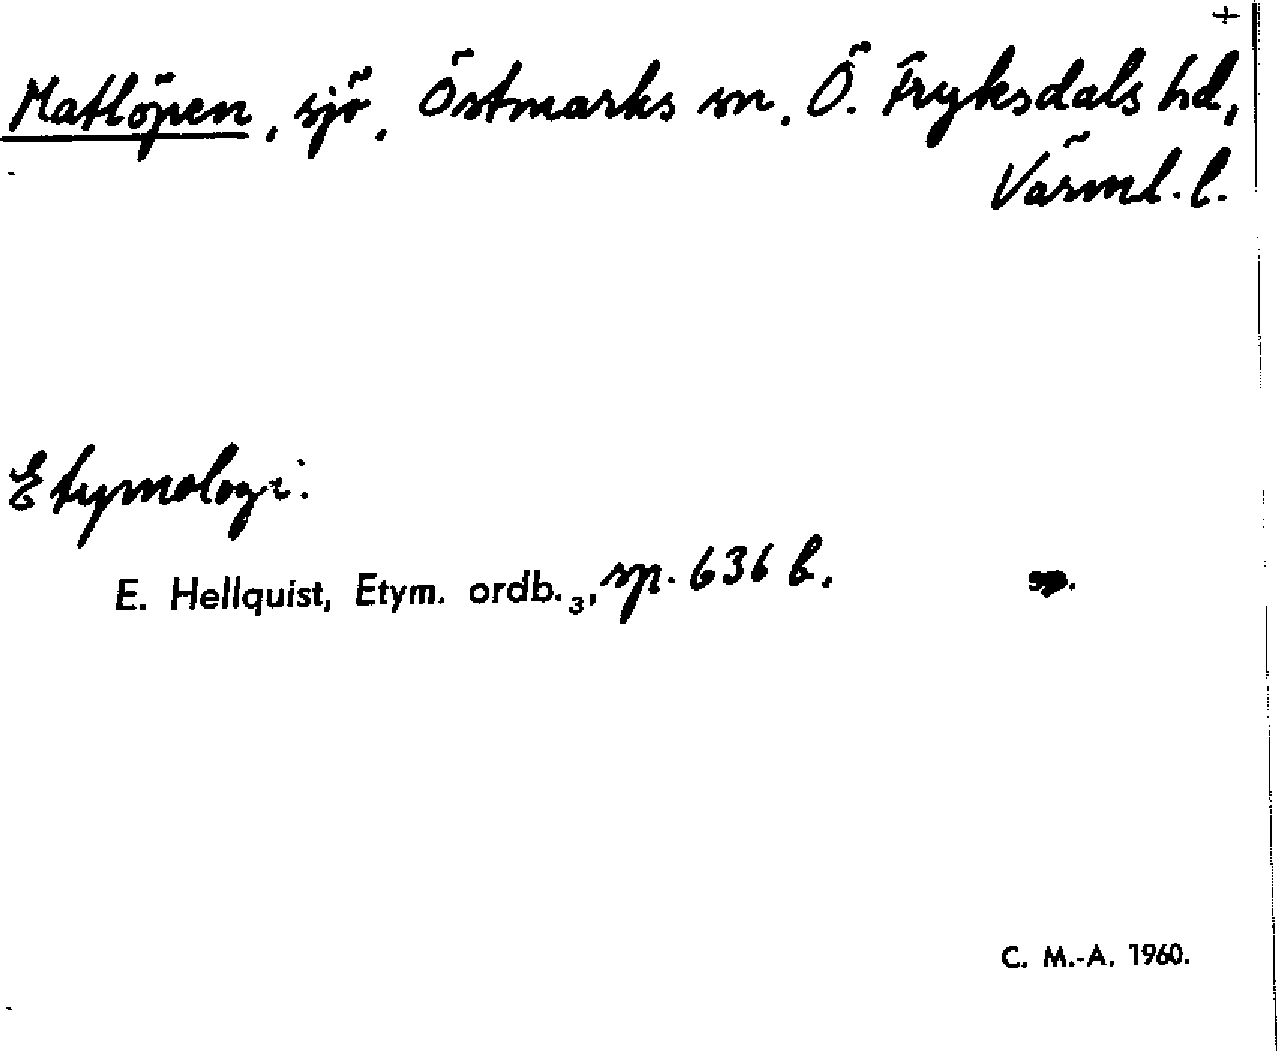 +
Matlöpen, sjö, Östmarks sn. Ö. Fryksdals hd,
Värml. l.
Etymologi:
E. Hellquist, Etym. ordb.₃, sp. 636 b.
C. M.-A. 1960.